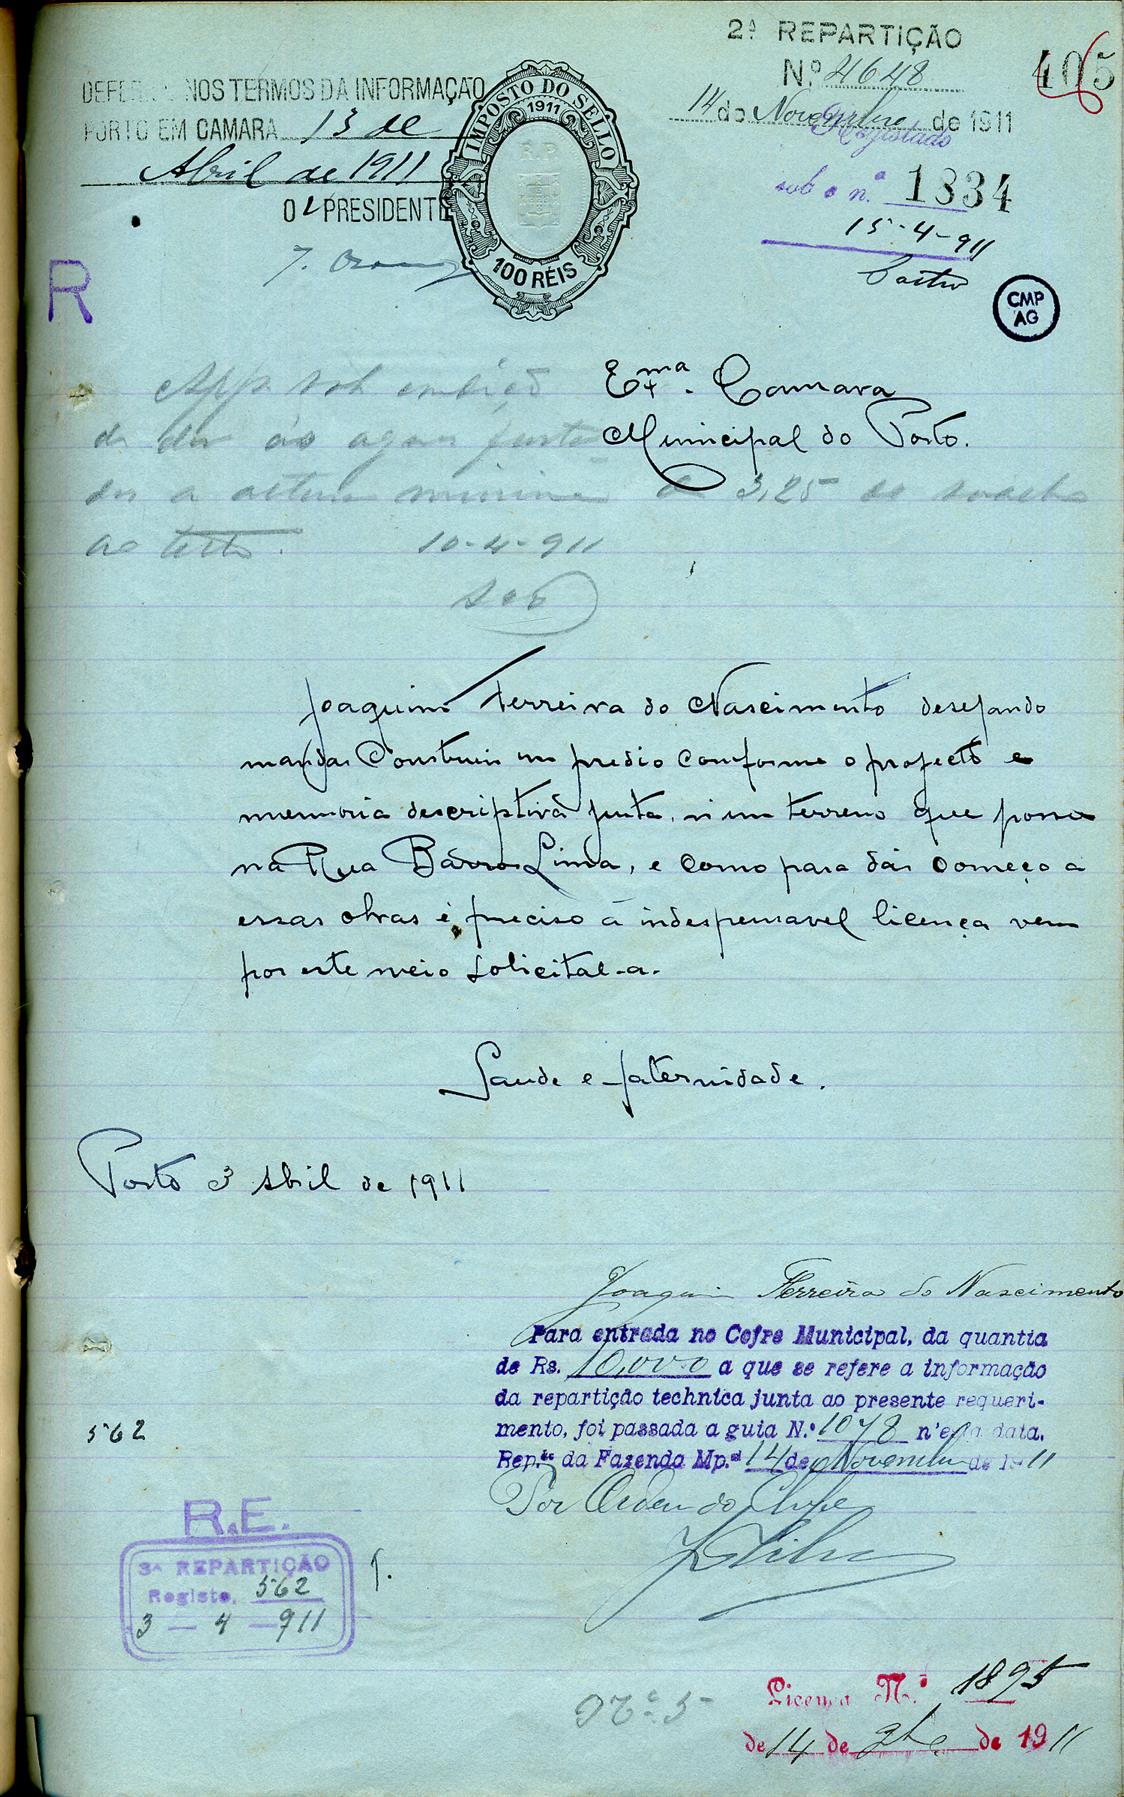 2ª REPARTIÇÃO
Nº 4648
14 de Novembro de 1911
405
6
DEFERIDO NOS TERMOS DA INFORMAÇÃO
PORTO EM CAMARA 13 de
Abril de 1911
O PRESIDENTE
IMPOSTO DO SELLO
1911
R.P.
100 RÉIS
Registado
sob o n.º 1834
15-4-911
Castro
CMP
AG
R
Exma. Camara
Municipal do Porto.
App. sob condiçõ
de dar ás aguas furta
das a altura minima de 3,25 do soalho
ao tecto. 10-4-911
Joaquim Ferreira do Nascimento desejando
mandar Construir um predio comforme o projecto e
memoria descriptiva junta, n'um terreno que possue
na Rua Barros Lima, e como para dar começo a
essas obras é preciso a indespensavel licença vem
por este meio solicital-a.
Saude e faternidade.
Porto 3 Abril de 1911
Joaquim Ferreira do Nascimento
Para entrada no Cofre Municipal, da quantia
de Rs. 10,000 a que se refere a informação
da repartição technica junta ao presente requeri-
mento, foi passada a guia N.º 1078 n'esta data.
Rep.ão da Fazenda Mp.al 14 de Novembro de 1911
Por Ordem do Chefe
JSilva
562
R.E.
3ª REPARTIÇÃO
Registo, 562
3 — 4 — 911
Licença N.º 1895
de 14 de 9bro de 1911